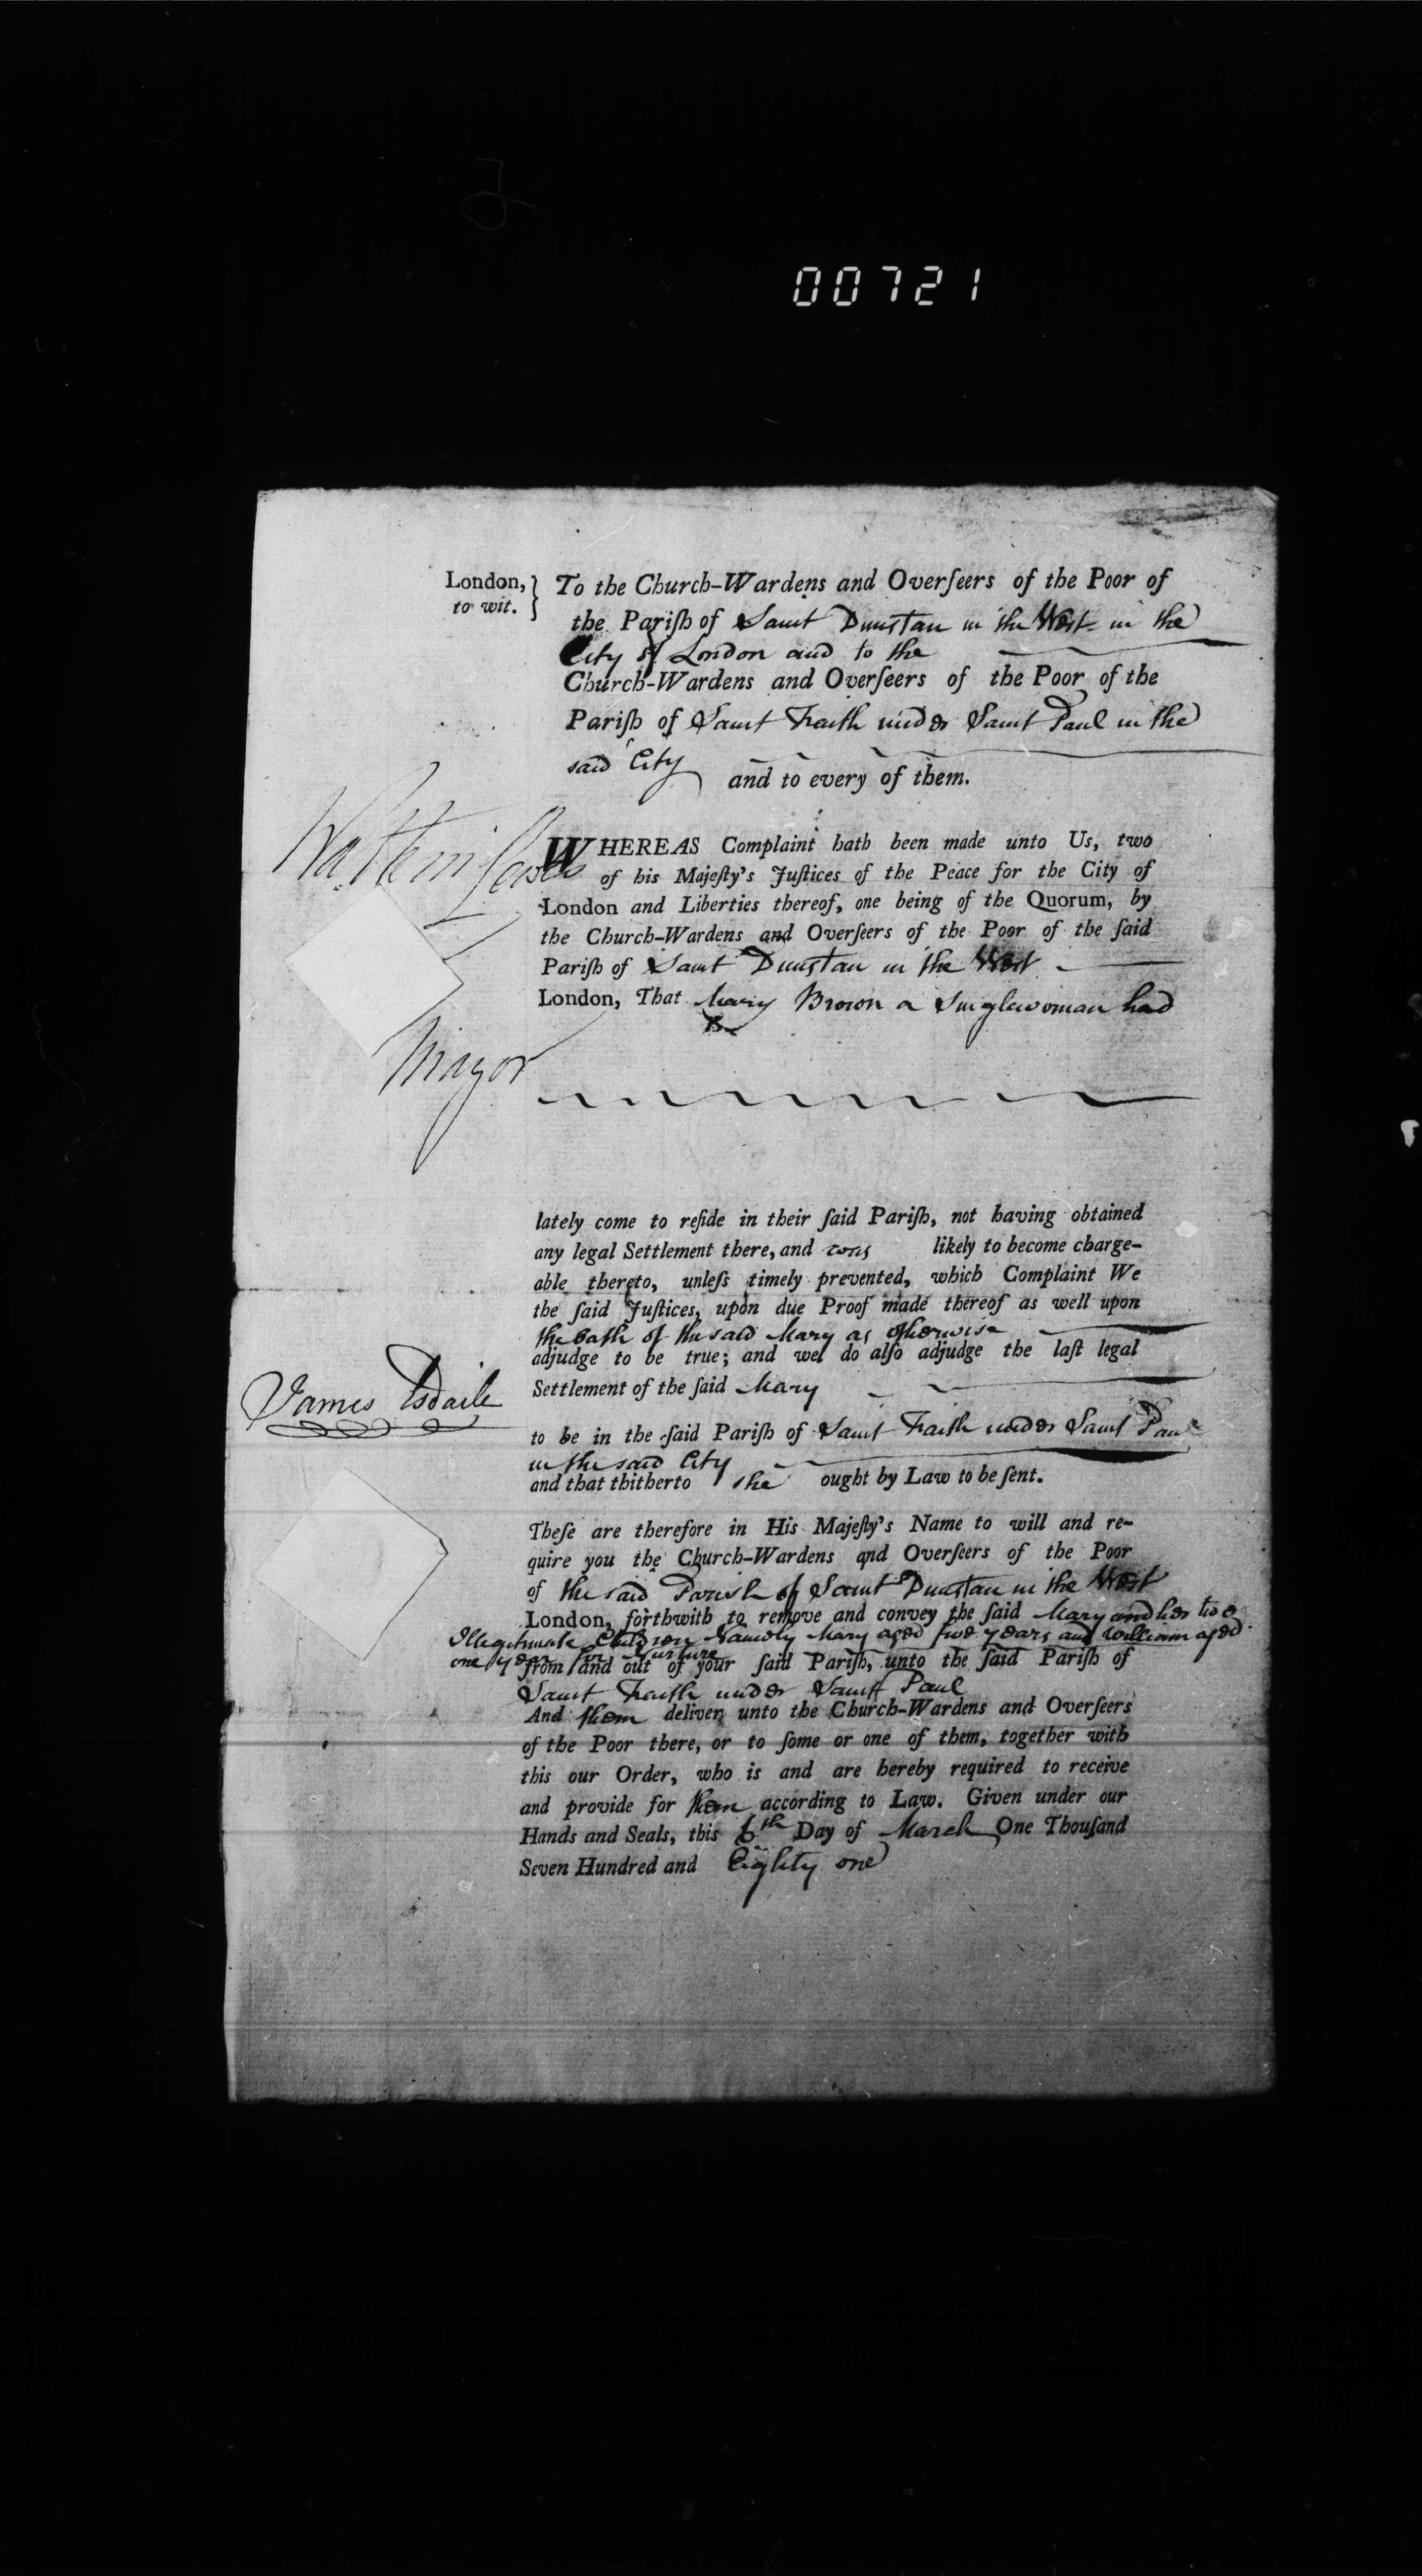 00721
London, to wit. } To the Church-Wardens and Overſeers of the Poor of
the Pariſh of Saint Dunstan in the West in the
City of London and to the
Church-Wardens and Overſeers of the Poor of the
Pariſh of Saint Faith under Saint Paul in the
said City and to every of them.
Watkin Lewes
Mayor
WHEREAS Complaint hath been made unto Us, two
of his Majeſty's Juſtices of the Peace for the City of
London and Liberties thereof, one being of the Quorum, by
the Church-Wardens and Overſeers of the Poor of the ſaid
Pariſh of Saint Dunstan in the West
London, That Mary Brown a Singlewoman had
lately come to reſide in their ſaid Pariſh, not having obtained
any legal Settlement there, and was likely to become charge-
able thereto, unleſs timely prevented, which Complaint We
the ſaid Juſtices, upon due Proof made thereof as well upon
the Oath of the said Mary as otherwise
adjudge to be true; and we do alſo adjudge the laſt legal
Settlement of the ſaid Mary
James Esdaile
to be in the ſaid Pariſh of Saint Faith under Saint Paul
in the said City
and that thitherto she ought by Law to be ſent.
Theſe are therefore in His Majeſty's Name to will and re-
quire you the Church-Wardens and Overſeers of the Poor
of the said Parish of Saint Dunstan in the West
London, forthwith to remove and convey the ſaid Mary and her two
Illegitimate Children Namely Mary aged five years and William aged
one year for Nurture
from and out of your ſaid Pariſh, unto the ſaid Pariſh of
Saint Faith under Saint Paul
And them deliver unto the Church-Wardens and Overſeers
of the Poor there, or to ſome or one of them, together with
this our Order, who is and are hereby required to receive
and provide for them according to Law. Given under our
Hands and Seals, this 6th Day of March One Thouſand
Seven Hundred and Eighty one